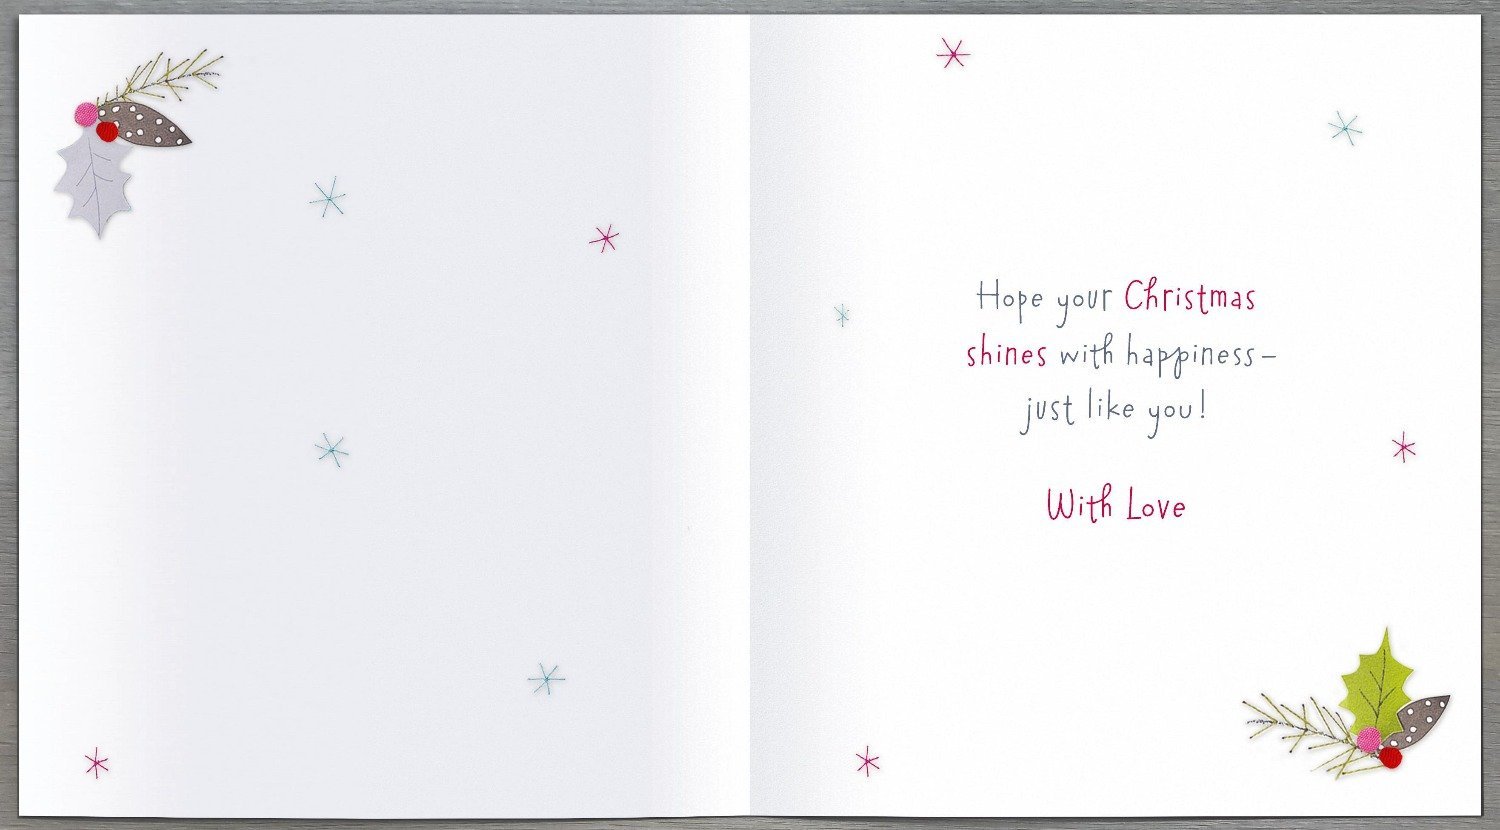 Hope your Christmas
shines with happiness–
just like you!
With Love